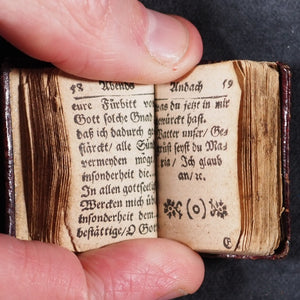 58 Abends
eure Fürbitt
Gott solche Gnad
daß ich dadurch
stärckt/ alle Sün
vermeyden möge
insonderheit die
In allen gottseeli
Wercken mich
insonderheit dem
bestättige/ O Gott
Andach 59
was du jetzt in mir
gewürckt hast.
Vatter unser/ Ge-
grüst seyst du Ma-
ria/ Ich glaub
an/ ꝛc.
(o)
E